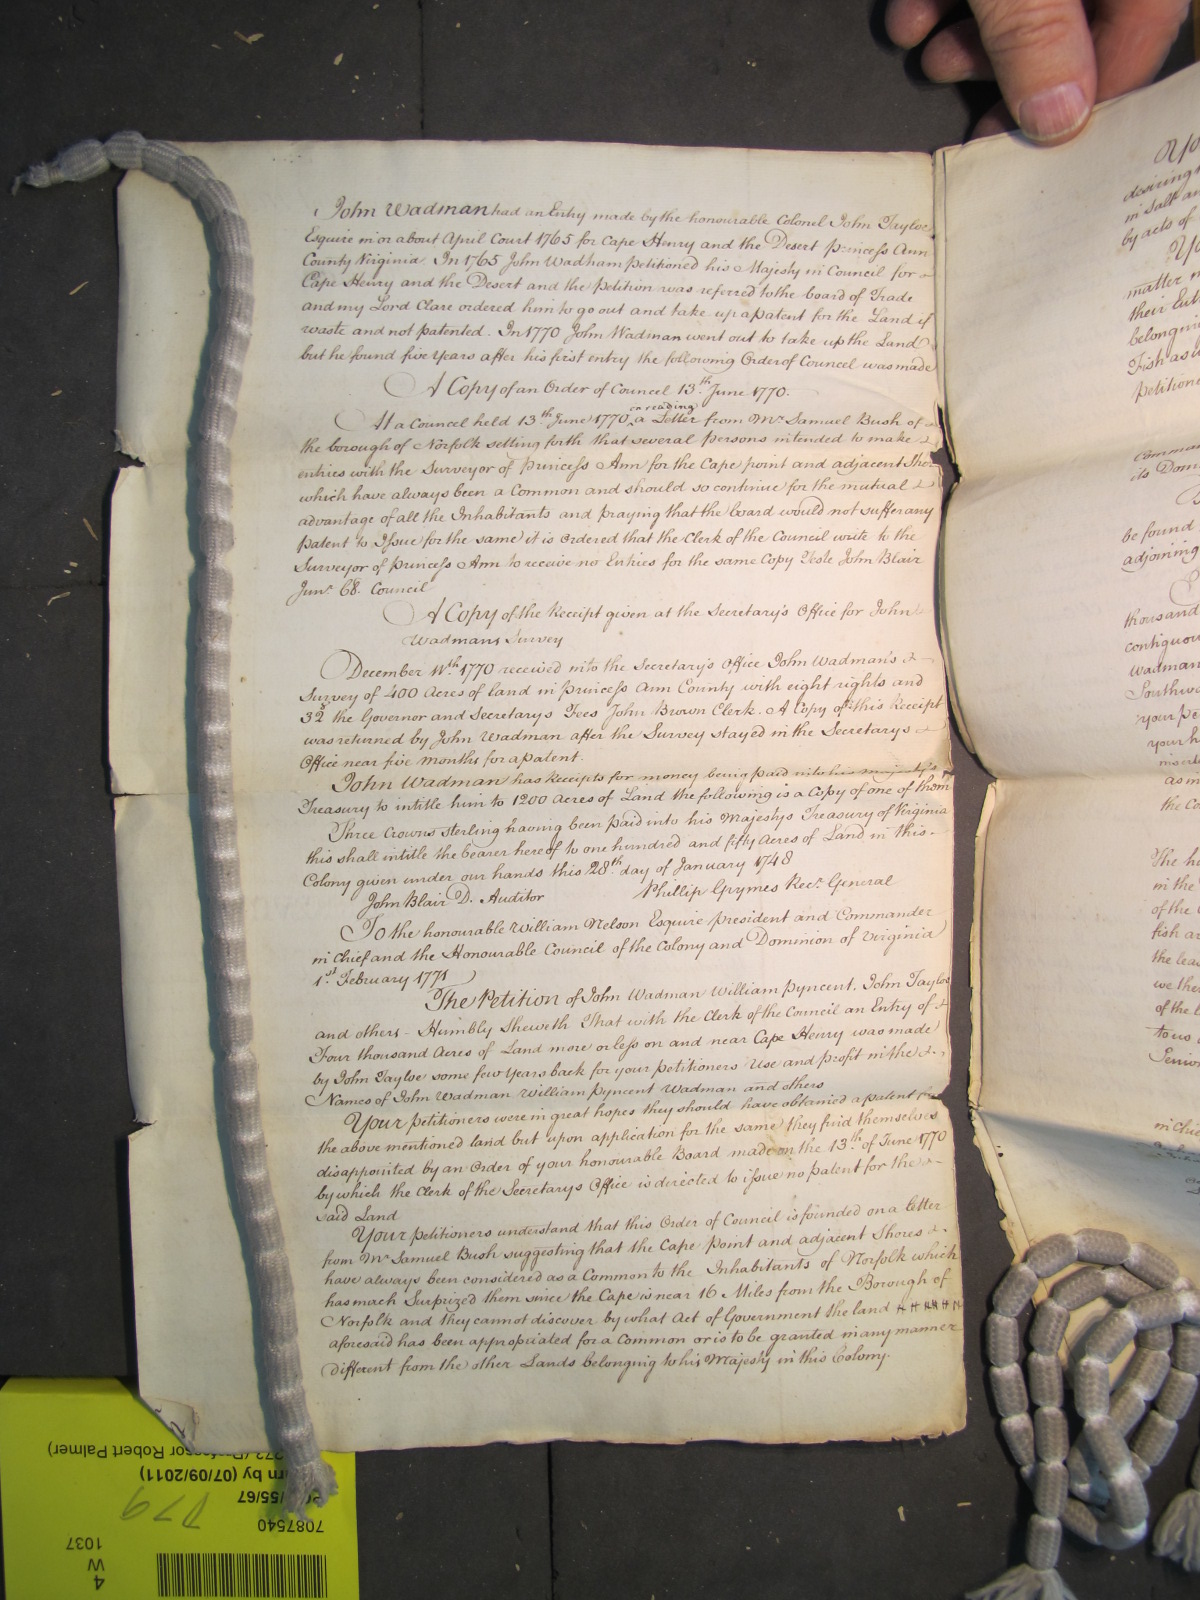 John Wadman had an Entry made by the honourable Colonel John Tayloe
Esquire in or about April Court 1765 for Cape Henry and the Desert Princess Ann
County Virginia. In 1765 John Wadham petitioned his Majesty in Council for
Cape Henry and the Desert and the petition was referred to the board of Trade
and my Lord Clare ordered him to go out and take up a patent for the Land if
waste and not patented. In 1770 John Wadman went out to take up the Land
but he found five Years after his first entry the following Order of Council was made
A Copy of an Order of Council 13th June 1770.
At a Council held 13th June 1770 on reading a Letter from Mr Samuel Bush of
the borough of Norfolk setting forth that several persons intended to make
entries with the Surveyor of Princess Ann for the Cape point and adjacent Shore
which have always been a Common and should so continue for the mutual
advantage of all the Inhabitants and praying that the board would not suffer any
patent to Issue for the same it is ordered that the Clerk of the Council write to the
Surveyor of Princess Ann to receive no Entries for the same Copy Teste John Blair
Junr Council
A Copy of the Receipt given at the Secretary's Office for John
Wadmans Survey
December 1770 received into the Secretary's Office John Wadman's
Survey of 400 Acres of land in Princess Ann County with eight rights and
the Governor and Secretarys Fees John Brown Clerk. A Copy of this Receipt
was returned by John Wadman after the Survey stayed in the Secretarys
Office near five months for a patent.
John Wadman has Receipts for money being paid into his majesty's
Treasury to intitle him to 1200 Acres of Land the following is a Copy of one of them
Three Crowns sterling having been paid into his Majestys Treasury of Virginia
this shall intitle the bearer hereof to one hundred and fifty Acres of Land in this
Colony given under our hands this 28th day of January 1748
John Blair D. Auditor Phillip Grymes Recr General
To the honourable William Nelson Esquire president and Commander
in Chief and the Honourable Council of the Colony and Dominion of Virginia
1st February 1771
The Petition of John Wadman William Pyncent. John Tayloe
and others - Humbly Sheweth That with the Clerk of the Council an Entry of
Four thousand Acres of Land more or less on and near Cape Henry was made
by John Tayloe some few Years back for your petitioners Use and profit in the
Names of John Wadman William Pyncent Wadman and others
Your petitioners were in great hopes they should have obtained a patent for
the above mentioned land but upon application for the same they find themselves
disappointed by an Order of your honourable Board made on the 13th of June 1770
by which the Clerk of the Secretarys Office is directed to issue no patent for the
said Land
Your petitioners understand that this Order of Council is founded on a letter
from Mr Samuel Bush suggesting that the Cape Point and adjacent Shores
have always been considered as a Common to the Inhabitants of Norfolk which
has much Surprized them since the Cape is near 16 Miles from the Borough of
Norfolk and they cannot discover by what Act of Government the land
aforesaid has been appropiated for a Common or is to be granted in any manner
different from the other Lands belonging to his Majesty in this Colony.
desiring
in Salt an
by acts of
matter
their
belongin
Fish as
petitione
its Dom
be found
adjoining
thousand
contiguou
Wadman
Southw
your pe
your h
as m
the Co
The h
in the
of the
fish ar
the lea
we the
of the l
to us
Senio
in Chie
(Professor Robert Palmer)
rn by (07/09/2011)
/55/67
D79
7087540
1037
W
4